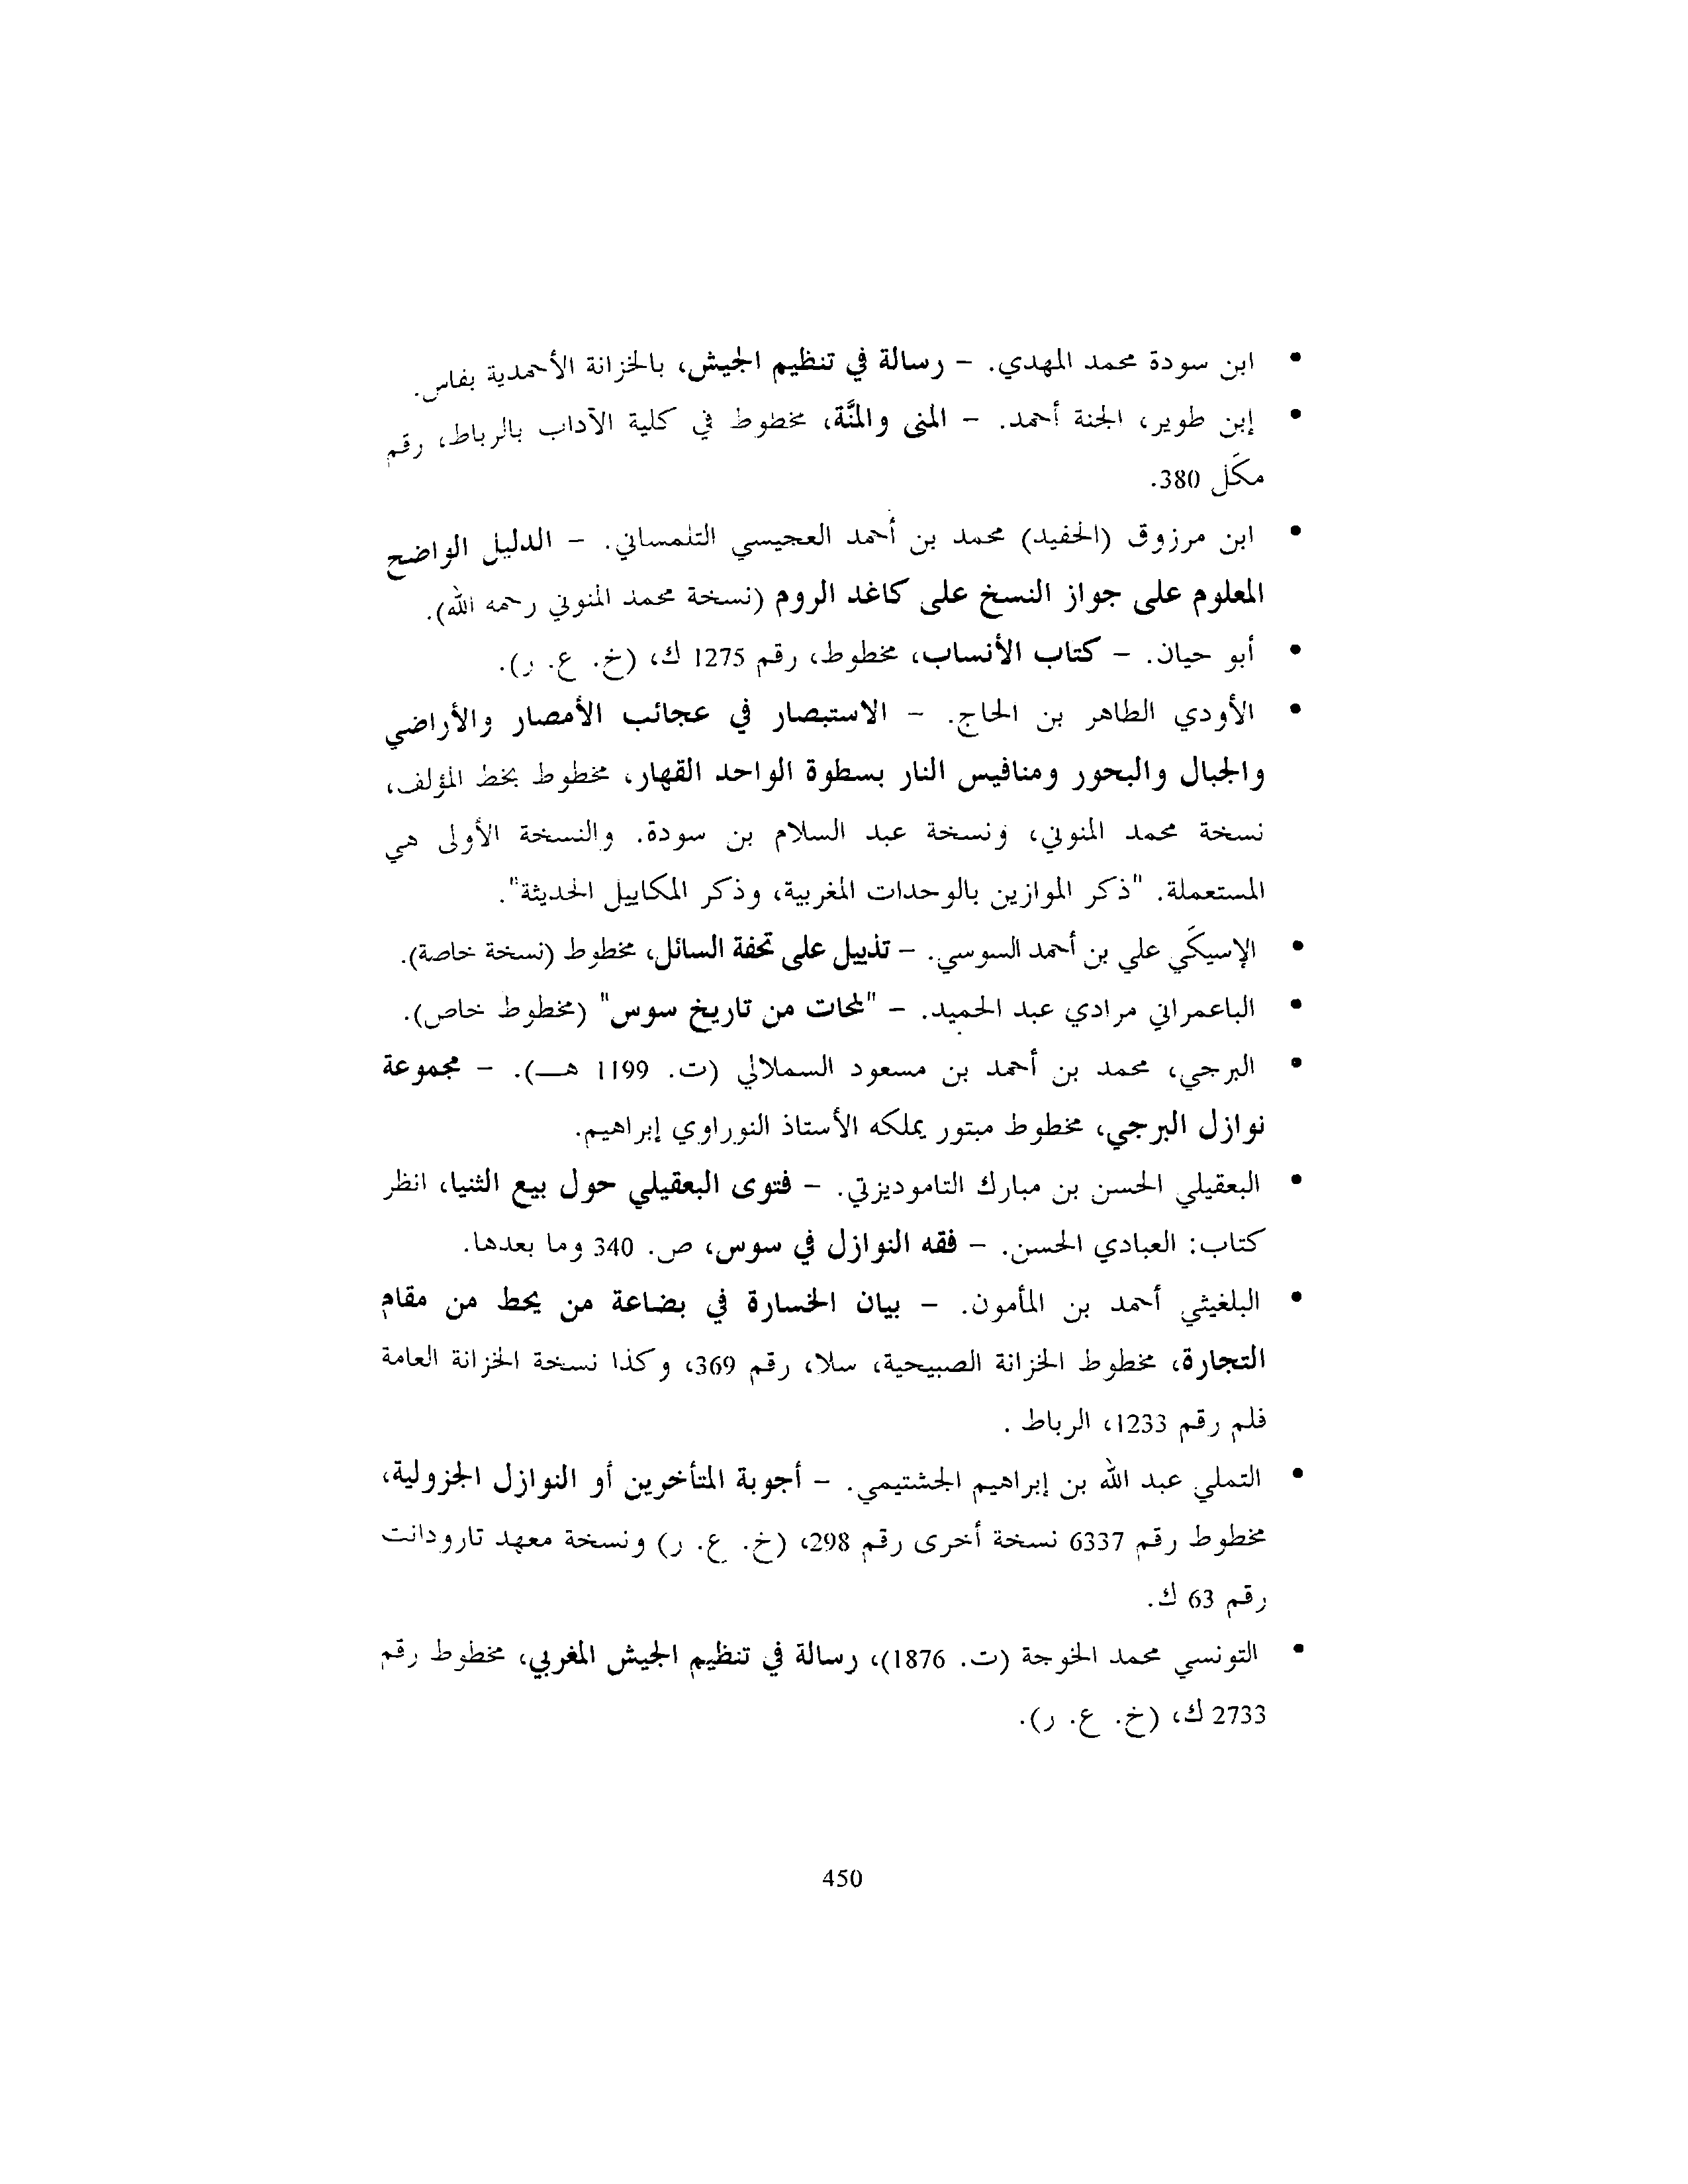 • ابن سودة محمد المهدي. – رسالة في تنظيم الجيش، بالخزانة الأحمدية بفاس.
• إبن طوير، الجنة أحمد. – المنى والمنَّة، مخطوط في كلية الآداب بالرباط، رقم
مكَل 380.
• ابن مرزوق (الحفيد) محمد بن أحمد العجيسي التلمساني. – الدليل الواضح
المعلوم على جواز النسخ على كاغد الروم (نسخة محمد المنوني رحمه الله).
• أبو حيان. – كتاب الأنساب، مخطوط، رقم 1275 ك، (خ. ع. ر).
• الأودي الطاهر بن الحاج. – الاستبصار في عجائب الأمصار والأراضي
والجبال والبحور ومنافيس النار بسطوة الواحد القهار، مخطوط بخط المؤلف،
نسخة محمد المنوني، ونسخة عبد السلام بن سودة. والنسخة الأولى هي
المستعملة. "ذكر الموازين بالوحدات المغربية، وذكر المكاييل الحديثة".
• الإسيكَي علي بن أحمد السوسي. – تذييل على تحفة السائل، مخطوط (نسخة خاصة).
• الباعمراني مرادي عبد الحميد. – "لمحات من تاريخ سوس" (مخطوط خاص).
• البرجي، محمد بن أحمد بن مسعود السملالي (ت. 1199 هــ). – مجموعة
نوازل البرجي، مخطوط مبتور يملكه الأستاذ النوراوي إبراهيم.
• البعقيلي الحسن بن مبارك التاموديزتي. – فتوى البعقيلي حول بيع الثنيا، انظر
كتاب: العبادي الحسن. – فقه النوازل في سوس، ص. 340 وما بعدها.
• البلغيثي أحمد بن المأمون. – بيان الخسارة في بضاعة من يحط من مقام
التجارة، مخطوط الخزانة الصبيحية، سلا، رقم 369، وكذا نسخة الخزانة العامة
فلم رقم 1233، الرباط .
• التملي عبد الله بن إبراهيم الجشتيمي. – أجوبة المتأخرين أو النوازل الجزولية،
مخطوط رقم 6337 نسخة أخرى رقم 298، (خ. ع. ر) ونسخة معهد تارودانت
رقم 63 ك.
• التونسي محمد الخوجة (ت. 1876)، رسالة في تنظيم الجيش المغربي، مخطوط رقم
2733 ك، (خ. ع. ر).
450